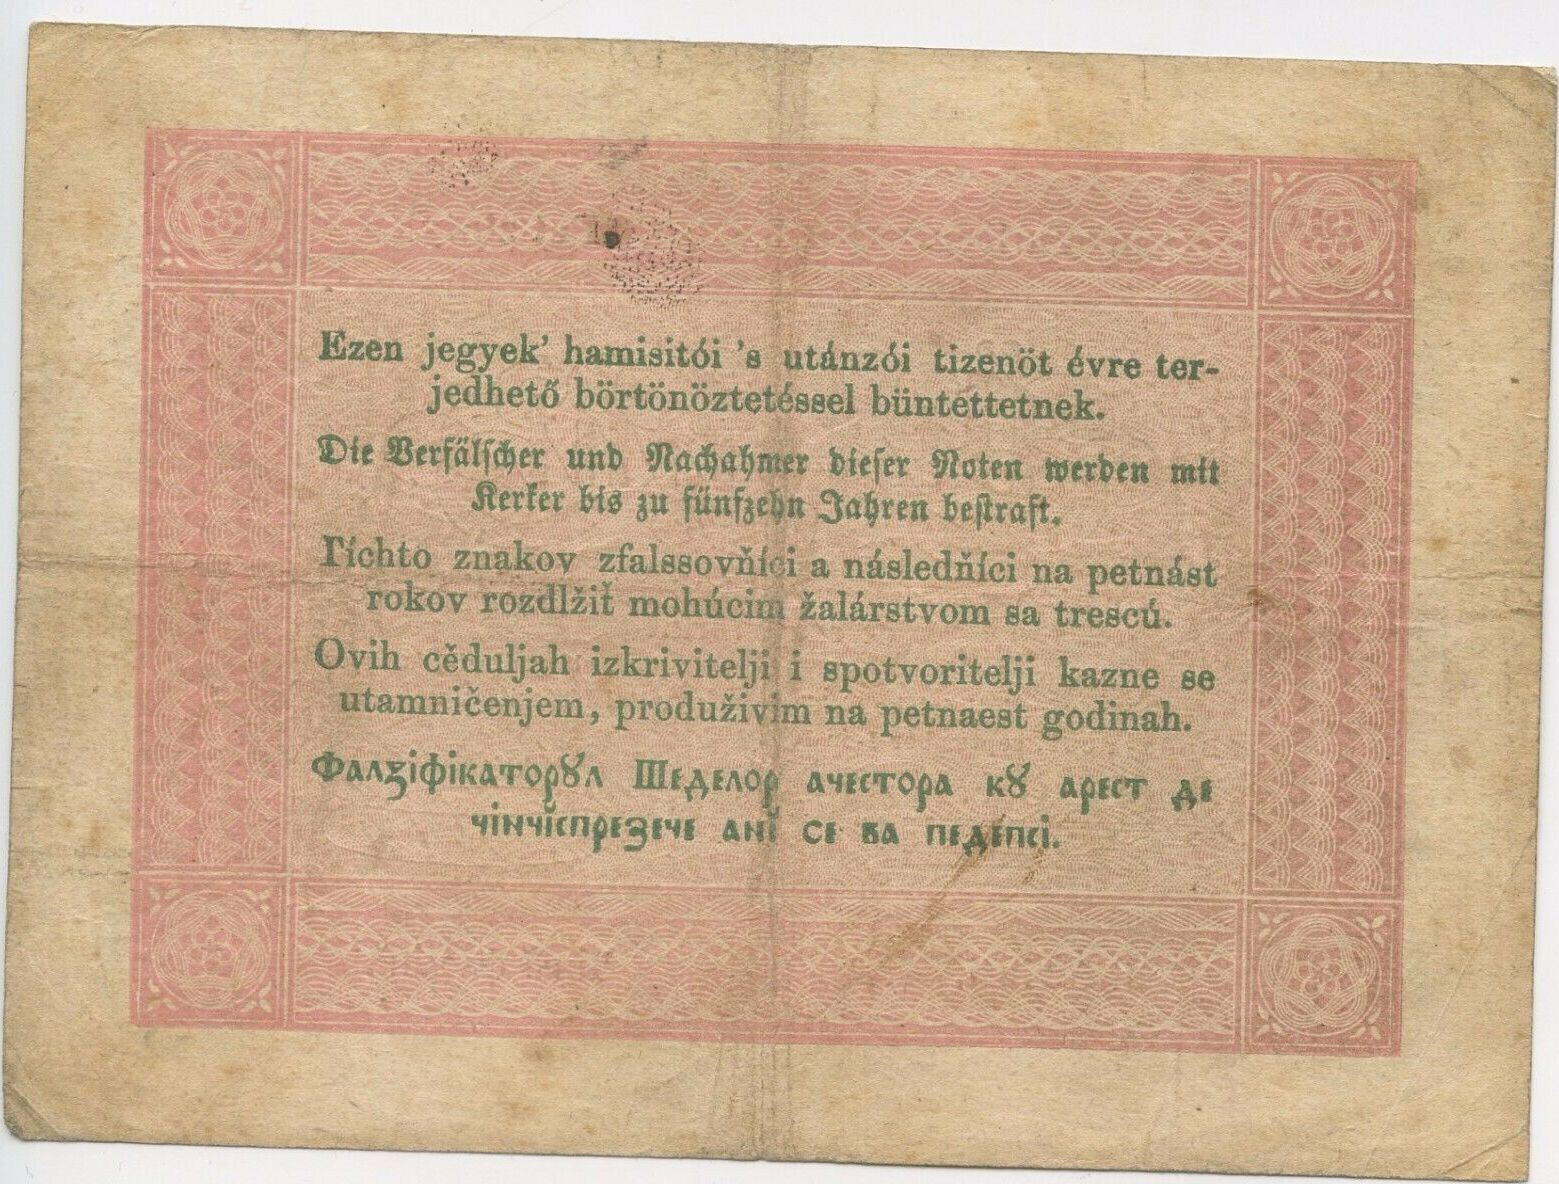 Ezen jegyek' hamisitói 's utánzói tizenöt évre ter-
jedhető börtönöztetéssel büntettetnek.
Die Verfälscher und Nachahmer dieser Noten werden mit
Kerker bis zu fünfzehn Jahren bestraft.
Tíchto znakov zfalssovňíci a následňíci na petnást
rokov rozdlžiť mohúcim žalárstvom sa trescú.
Ovih cěduljah izkrivitelji i spotvoritelji kazne se
utamničenjem, produživim na petnaest godinah.
Фалѯіфікаторȣл Шеделор ачестора кȣ арест де
чінчіспрезече анї се ва педепсі.